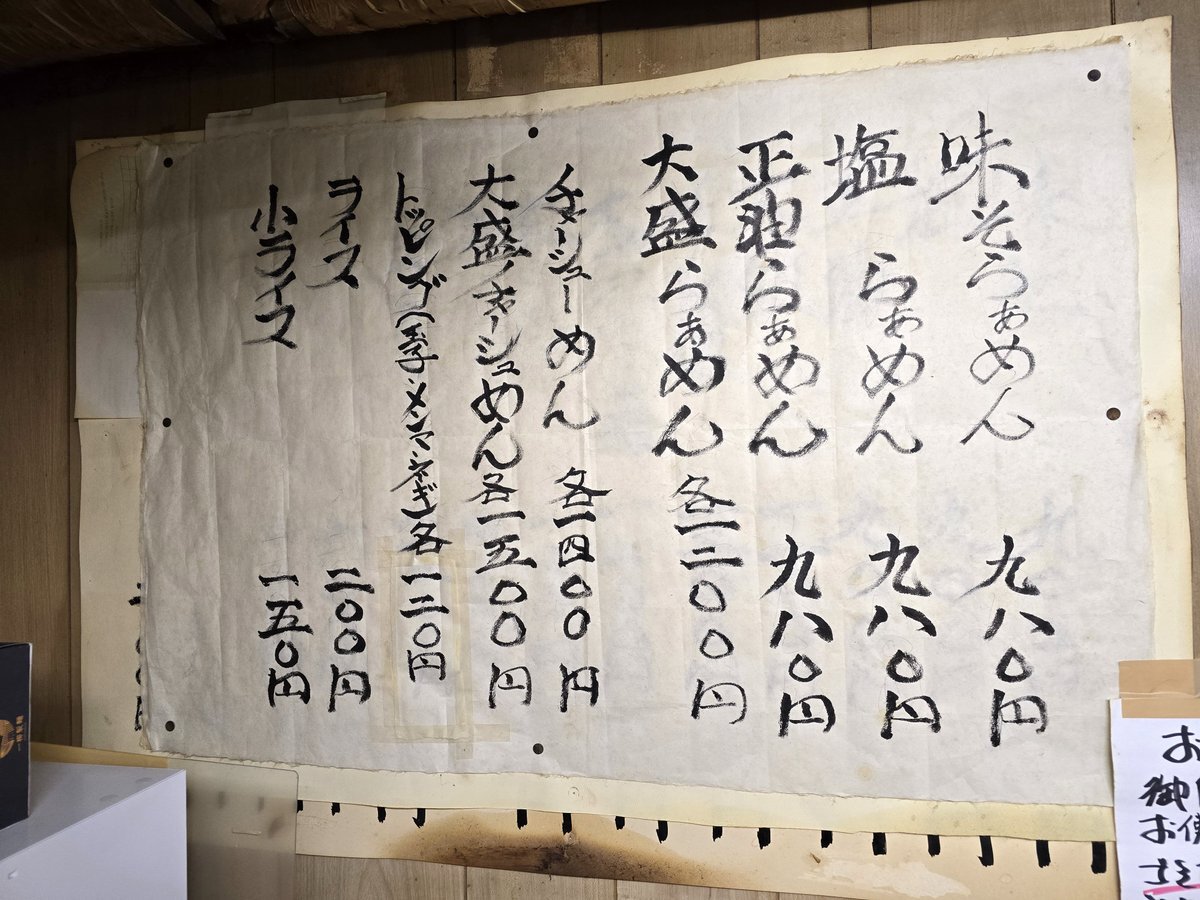 味そらぁめん 九八〇円
塩 らぁめん 九八〇円
正油らぁめん 九八〇円
大盛らぁめん 各一二〇〇円
チャーシューめん 各一四〇〇円
大盛チャーシュめん各一五〇〇円
トッピング(玉子・メンマ・ネギ)各一二〇円
ライス 二〇〇円
小ライス 一五〇円
お
御
お